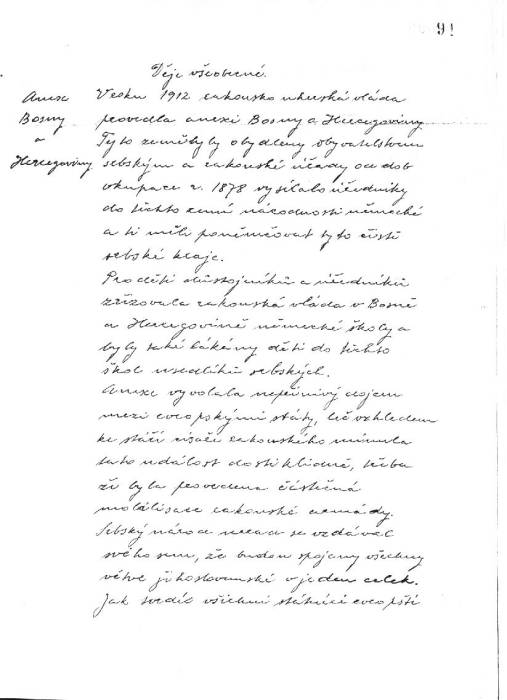 91
Děje všeobecné.
Anexe
Bosny
a
Hercegoviny.
V roku 1912 rakousko uherská vláda
provedla anexi Bosny a Hercegoviny.
Tyto země byly obydleny obyvatelstvem
srbským a rakouské úřady od dob
okupace r. 1878 vysílalo úředníky
do těchto zemí národnosti německé
a ti měli poněmčovat tyto čistě
srbské kraje.
Pro děti důstojníků a úředníků
zřizovala rakouská vláda v Bosně
a Hercegovině německé školy a
byly také lákány děti do těchto
škol usedlíků srbských.
Anexe vyvolala nepříznivý dojem
mezi evropskými státy, leč vzhledem
ke stáří císaře rakouského minula
tato událost dosti klidně, třeba
že byla provedena částečná
mobilisace rakouské armády.
Srbský národ nerad se vzdával
svého snu, že budou spojeny všechny
větve jihoslovanské v jeden celek.
Jak tvrdí všichni státníci evropští